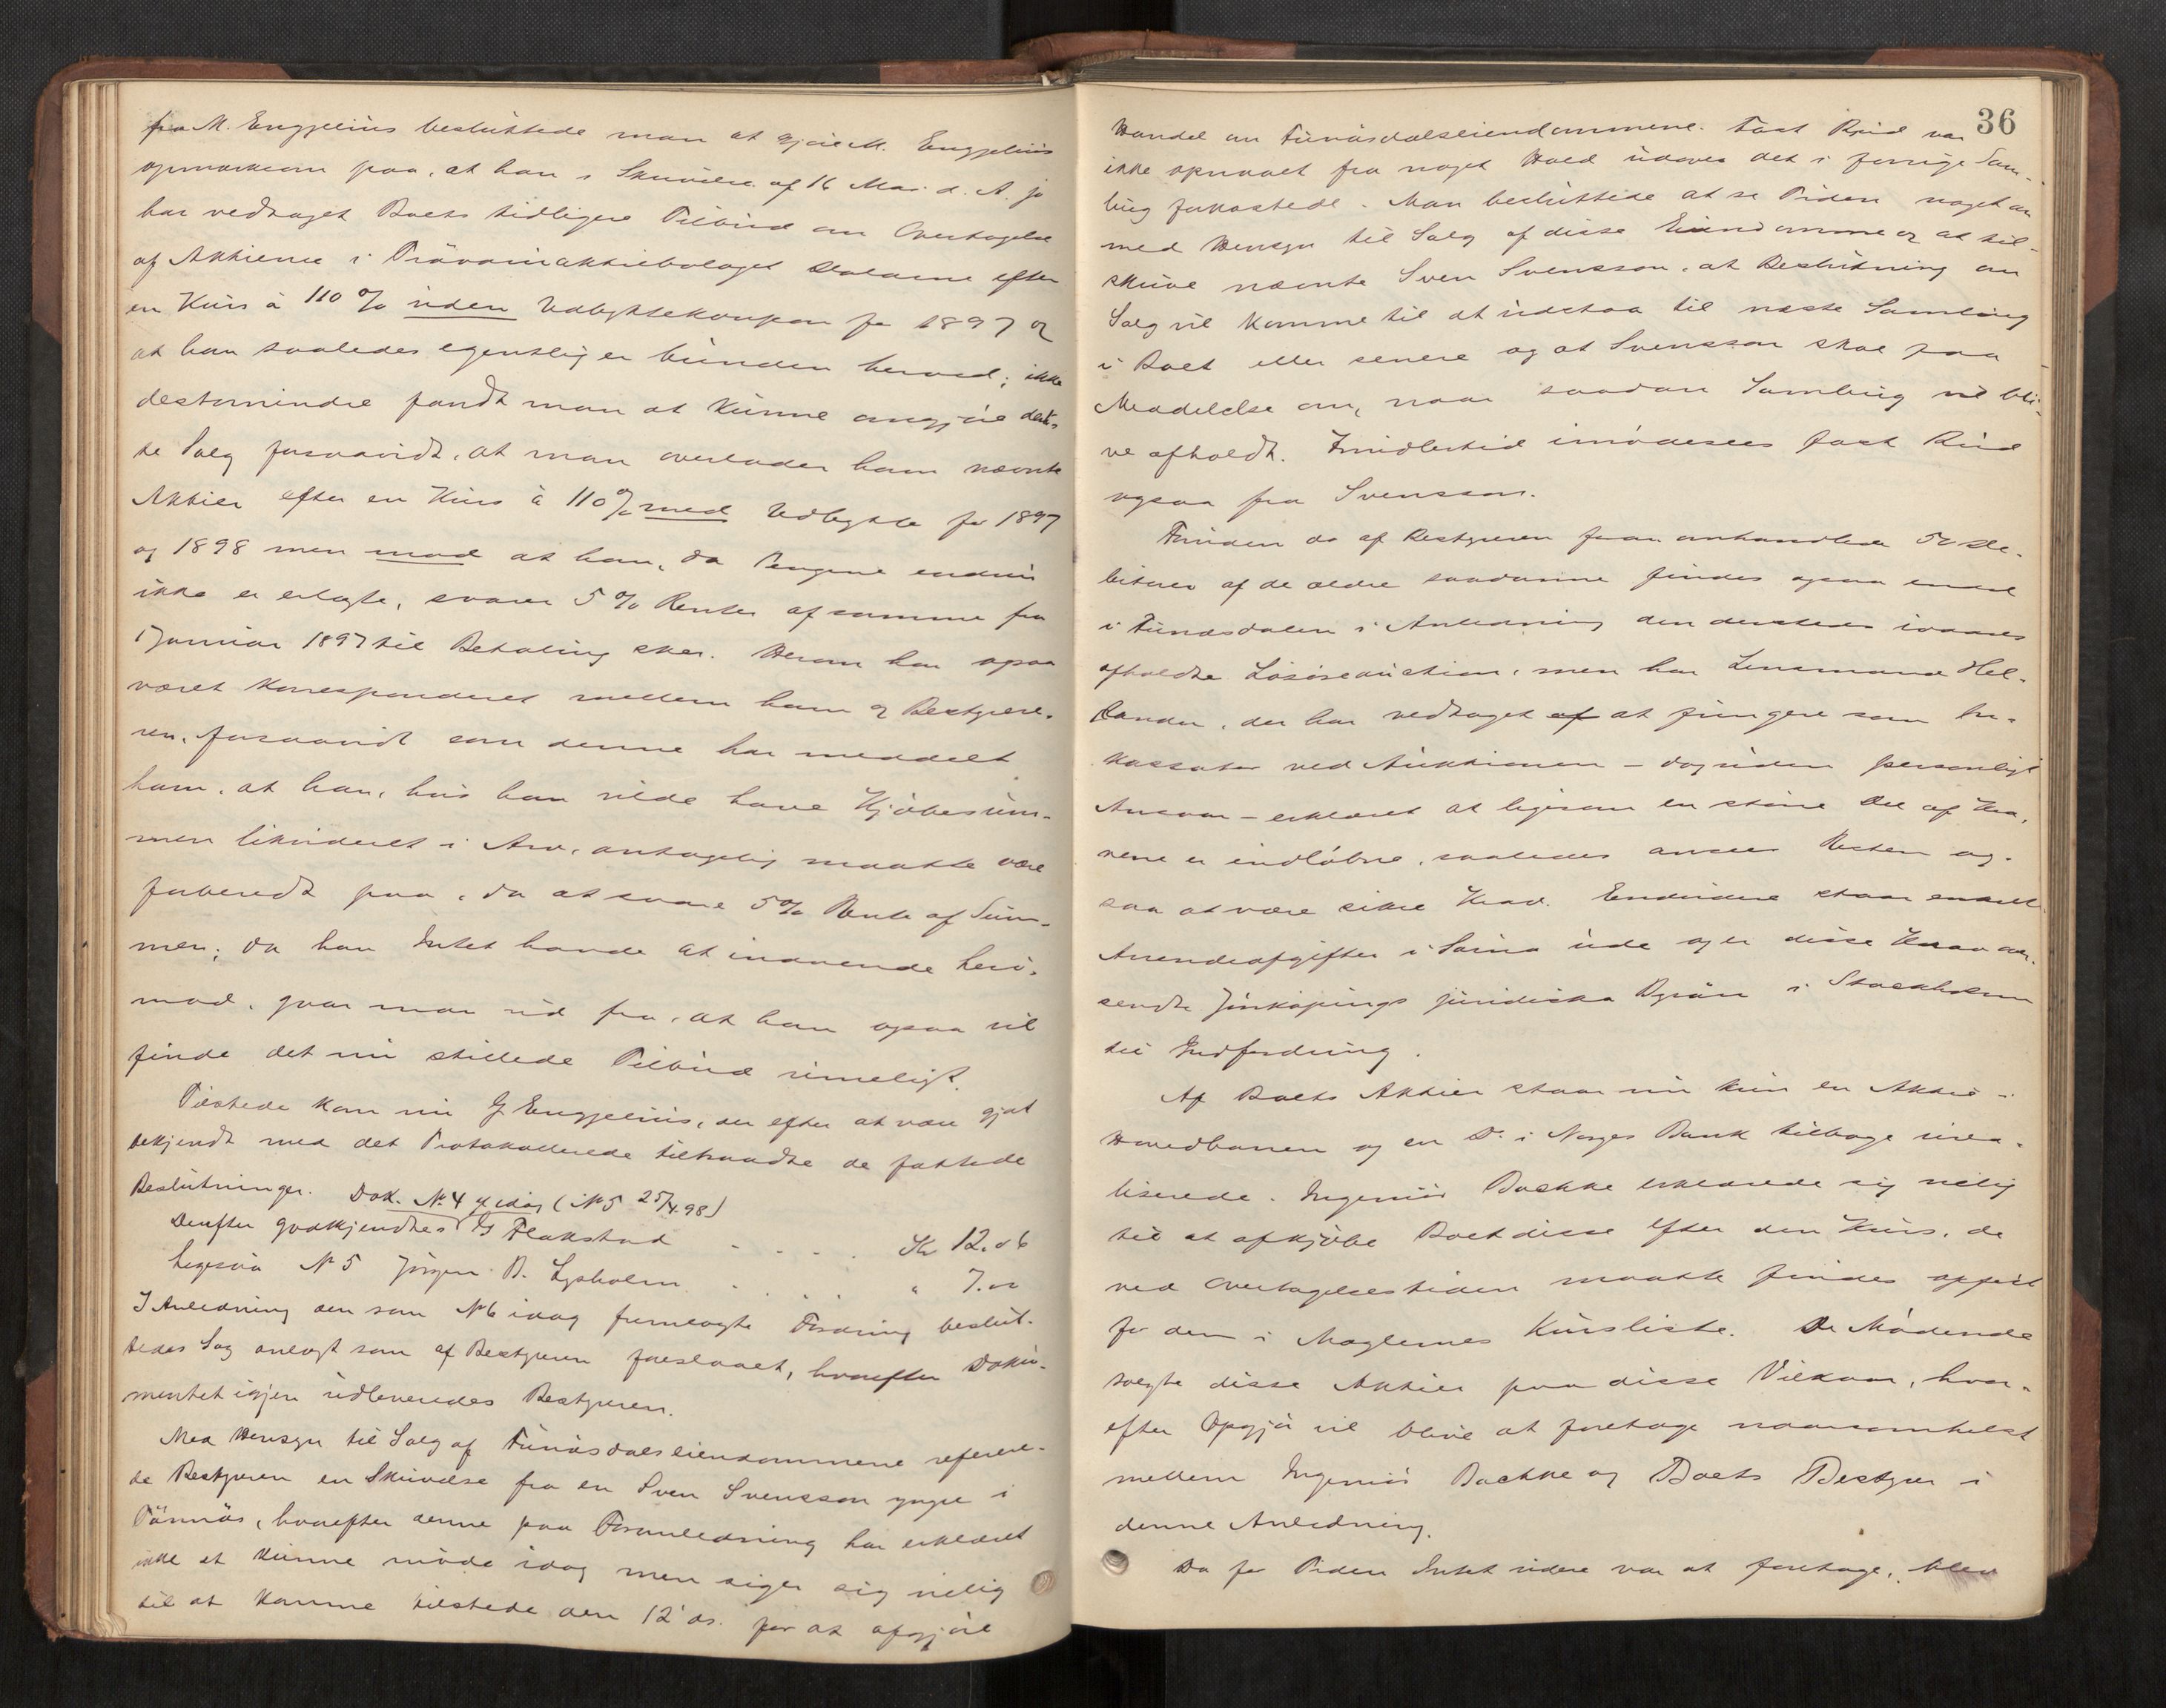 fra M. Engzelius besluttede man at gjøre M. Engzelius
opmærksom paa, at han i Skrivelse af 16 Mai d. A. jo
har vedtaget Boets tidligere Tilbud om Overtagelse
af Aktierne i Trävaruaktiebolaget Dalarne efter
en Kurs à 110 % uden Udbyttekoupon for 1897 og
at han saaledes egentlig er bunden herved; ikke
destomindre fandt man at kunne omgjøre det-
te Salg forsaavidt, at man overlader ham nævnte
Aktier efter en Kurs à 110% med Udbytte for 1897
og 1898 men mod at han, da Pengene endnu
ikke er erlagte, svarer 5 % Renter af samme fra
1 Januar 1897 til Betaling sker. Herom har ogsaa
været korresponderet mellem ham og Bestyre-
ren, forsaavidt som denne har meddelt
ham, at han, hvis han vilde have Kjøbesum-
men likvideret i Arv, antagelig maatte være
forberedt paa, da at svare 5% Rente af Sum-
men; da han Intet havde at indvende heri-
mod, gaar man ud fra, at han ogsaa vil
finde det nu stillede Tilbud rimeligt.
Tilstede kom nu G Engzelius, der efter at være gjort
bekjendt med det Protokollerede tiltraadte de fattede
Beslutninger. Dok. No 4 f idag (No 5 25/4 98)
Derefter godkjendtes G Flakstad . . . . Kr 12.06
Ligesaa No 5 Jørgen B. Lysholm . . . . " 7.00
I Anledning den som No 6 idag fremlagte Fordring beslut-
tedes Sag anlagt som af Bestyreren foreslaaet, hvorefter Doku-
mentet igjen udleveredes Bestyreren.
Med Hensyn til Salg af Funäsdalseiendommene referere-
de Bestyreren en Skrivelse fra en Sven Svensson yngre i
Tännäs, hvorefter denne paa Foranledning har erklæret
ikke at kunne møde idag men siger sig villig
til at komme tilstede den 12' ds. for at afgjøre
36
Handel om Funäsdalseiendommene. Fast Bud var
ikke opnaaet fra noget Hold udover det i forrige Sam-
ling forkastede. Man besluttede at se Tiden noget an
med Hensyn til Salg af disse Eiendomme og at til-
skrive nævnte Sven Svensson, at Beslutning om
Salg vil komme til at udstaa til næste Samling
i Boet eller senere og at Svensson skal faa
Meddelelse om, naar saadan Samling vil bli-
ve afholdt. Imidlertid imødesees fast Bud
ogsaa fra Svensson.
Foruden de af Bestyreren foran omhandlede De-
bitorer af de ældre saadanne findes ogsaa endel
i Funäsdalen i Anledning den dersteds ivaares
afholdte Løsøreauction, men har Lensmand Hel-
lander, der har vedtaget af at fungere som In-
kassator ved Auktionen – dog uden personligt
Ansvar – erklæret at ligesom en større Del af Kra-
vene er indløbne, saaledes ansees Resten og-
saa at være sikre Krav. Endvidere staar enkelte
Arrendeafgifter i Särna ude og er disse Krav over-
sendte Jönköpings juridiska Byrån i Stockholm
til Indfordring.
Af Boets Aktier staar nu kun en Aktie i
Hovedbanen og en Do i Norges Bank tilbage urea-
liserede. Ingeniør Bachke erklærede sig villig
til at afkjøbe Boet disse efter den Kurs, de
ved Overtagelsestiden maatte findes opført
for dem i Mæglernes Kursliste. De Mødende
solgte disse Aktier paa disse Vilkaar, hvor-
efter Opgjør vil blive at foretage naarsomhelst
mellem Ingeniør Bachke og Boets Bestyrer i
denne Anledning.
Da for Tiden Intet videre var at foretage, blev